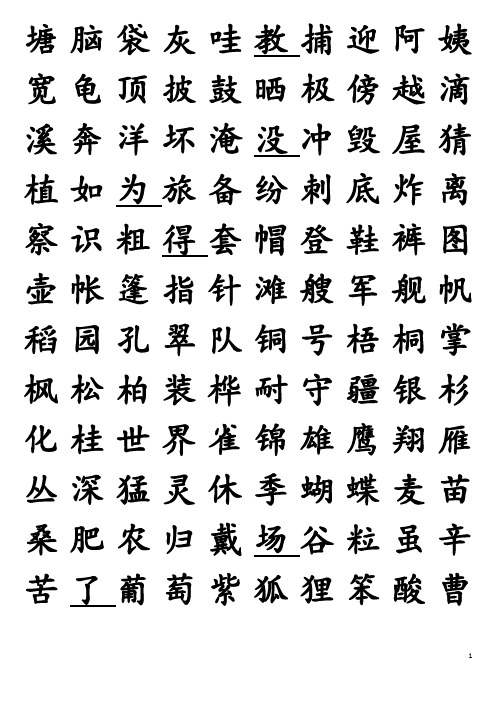 塘 脑 袋 灰 哇 教 捕 迎 阿 姨
宽 龟 顶 披 鼓 晒 极 傍 越 滴
溪 奔 洋 坏 淹 没 冲 毁 屋 猜
植 如 为 旅 备 纷 刺 底 炸 离
察 识 粗 得 套 帽 登 鞋 裤 图
壶 帐 篷 指 针 滩 艘 军 舰 帆
稻 园 孔 翠 队 铜 号 梧 桐 掌
枫 松 柏 装 桦 耐 守 疆 银 杉
化 桂 世 界 雀 锦 雄 鹰 翔 雁
丛 深 猛 灵 休 季 蝴 蝶 麦 苗
桑 肥 农 归 戴 场 谷 粒 虽 辛
苦 了 葡 萄 紫 狐 狸 笨 酸 曹
1